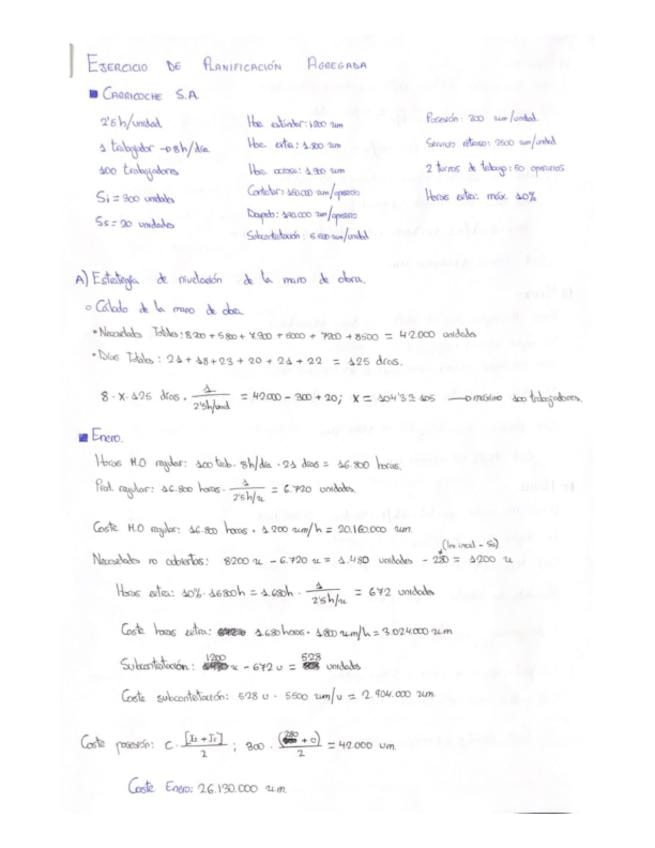 EJERCICIO DE PLANIFICACIÓN AGREGADA
CARRICOCHE S.A.
2'5h/unidad
1 trabajador → 8h/día
100 trabajadores
Si = 300 unidades
Ss = 20 unidades
Hora estándar: 1200 um
Hora extra: 1.800 um
Hora ociosa:
Contratar: um/operario
Despido: um/operario
Subcontratación: 5.500 um/unidad
Posesión: 300 um/unidad
Servicio retraso: 2500 um/unidad
2 turnos de trabajo: 50 operarios
Horas extra: máx 10%
A) Estrategia de nivelación de la mano de obra.
○ Cálculo de la mano de obra
• Necesidades Totales: 8200 + 5800 + + 6000 + 7200 + 8500 = 42.000 unidades
• Días Totales: 21 + 18 + 23 + 20 + 21 + 22 = 125 días.
8 · X · 125 días · 1 / 2'5h/unid = 42000 - 300 + 20; X = 104'3 ≃ 105 → máximo 100 trabajadores.
Enero.
Horas M.O regular: 100 trab · 8h/día · 21 días = 16.800 horas.
Prod. regular: 16.800 horas · 1 / 2'5h/u = 6.720 unidades.
Coste M.O regular: 16.800 horas · 1200 um/h = 20.160.000 um.
Necesidades no cubiertas: 8200 u - 6.720 u = 1.480 unidades - 280 = 1200 u
(Inv. inicial - Ss)
Horas extra: 10% · 16800h = 1.680h · 1 / 2'5h/u = 672 unidades
Coste horas extra: 1.680 horas · 1800 um/h = 3.024.000 um
Subcontratación: 1200 u - 672 u = 528 unidades
Coste subcontratación: 528 u · 5500 um/u = 2.904.000 um
Coste posesión: C · [Ii + If] / 2 ; 300 · (280 + 0) / 2 = 42.000 um.
Coste Enero: 26.130.000 um